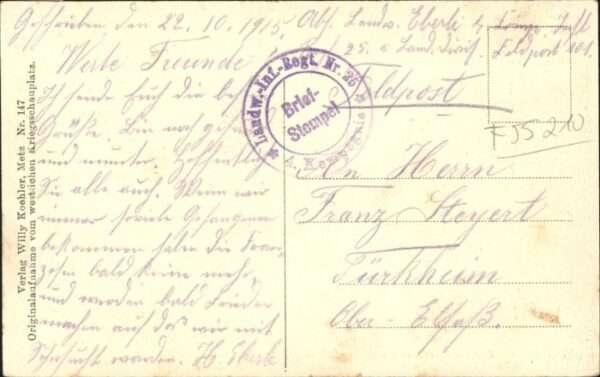 Geschrieben den 22.10.1915
Werte Freunde
Ich sende Euch die besten
Grüße. Bin noch gesund
und munter. Hoffentlich
Sie alle auch. Wenn wir
immer soviele Gefangene
bekommen haben die Fran-
zosen bald keine mehr
und werden bald Frieden
machen auf das wir mit
Sehnsucht warten. H. Eberle
Abs. Landw. Eberle
Feldpost 101.
Feldpost
An Herrn
Franz Heyert
Türkheim
Ober-Elsaß.
Landw.-Inf.-Regt. Nr. 25
Brief-
Stempel
Kompagnie
FJS 210
Verlag Willy Koehler, Metz Nr. 147
Originalaufnahme vom westlichen Kriegsschauplatz.